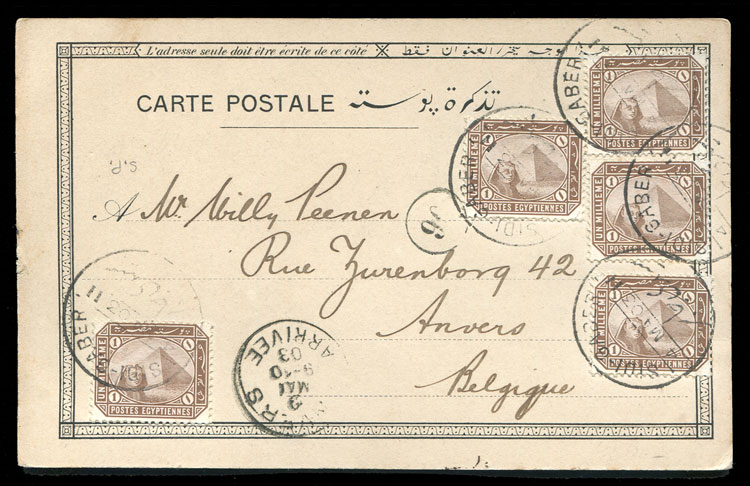 L'adresse seule doit être écrite de ce côté
CARTE POSTALE تذكرة بوسته
A Mr. Willy Peenen
Rue Zurenborg 42
Anvers
Belgique
96
UN MILLIEME
1
POSTES EGYPTIENNES
UN MILLIEME
1
POSTES EGYPTIENNES
UN MILLIEME
1
POSTES EGYPTIENNES
UN MILLIEME
1
POSTES EGYPTIENNES
UN MILLIEME
1
POSTES EGYPTIENNES
GABER
SIDI GABER
GABER
SIDI GABER
GABER
ARRIVEE
03
9-10
MAI